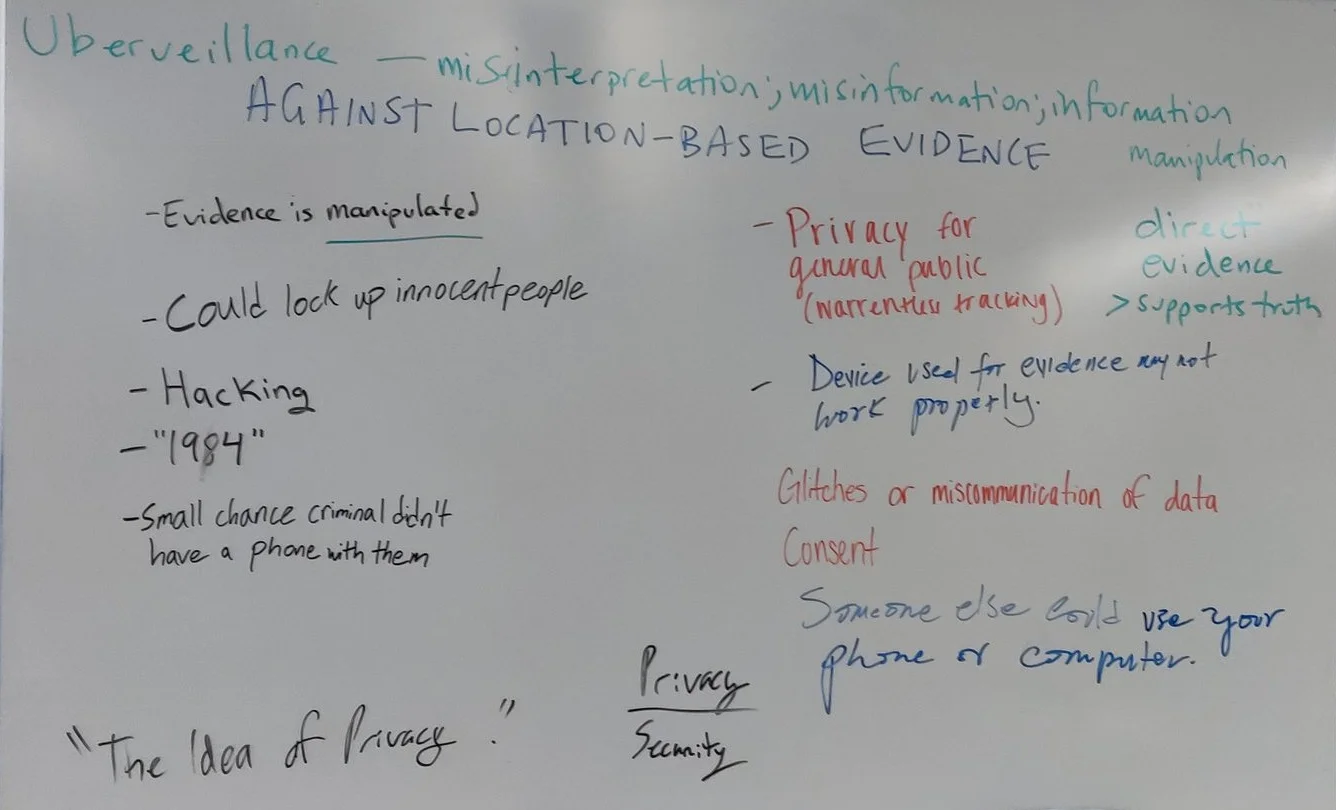 Uberveillance — misinterpretation; misinformation; information
manipulation
AGAINST LOCATION-BASED EVIDENCE
- Evidence is manipulated
- Could lock up innocent people
- Hacking
- "1984"
- Small chance criminal didn't
have a phone with them
- Privacy for
general public
(warrentless tracking)
direct
evidence
> supports truth
- Device used for evidence may not
work properly.
Glitches or miscommunication of data
Consent
Someone else could use your
phone or computer.
Privacy
Security
"The Idea of Privacy."